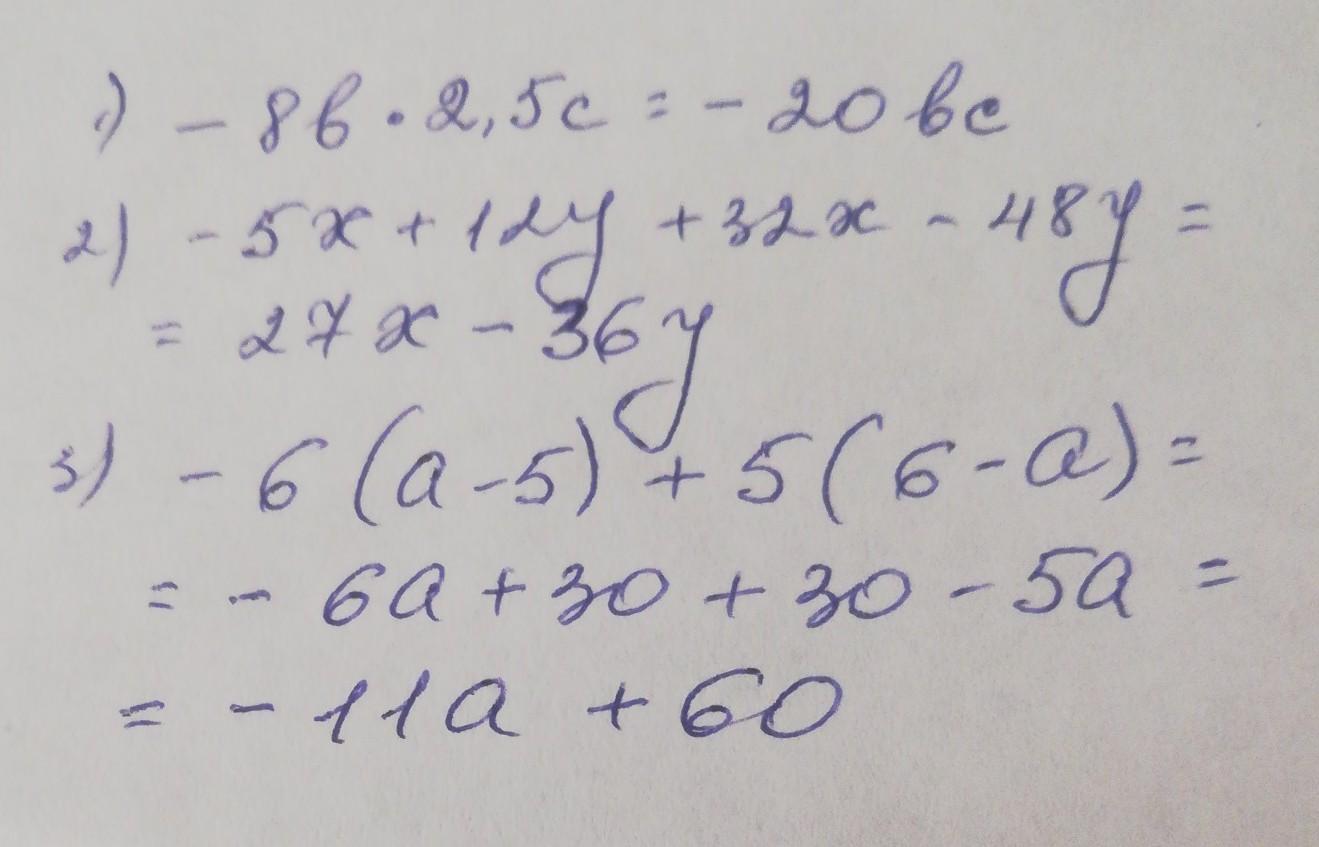 1) - 8b · 2,5c = - 20 bc
2) - 5x + 12y + 32x - 48y =
= 27x - 36y
3) - 6 (a - 5) + 5 (6 - a) =
= - 6a + 30 + 30 - 5a =
= - 11a + 60